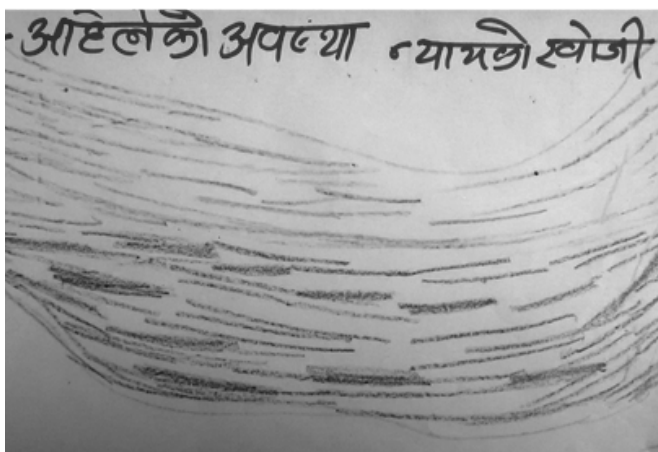 - अहिलेको अवस्था न्यायको खोजी